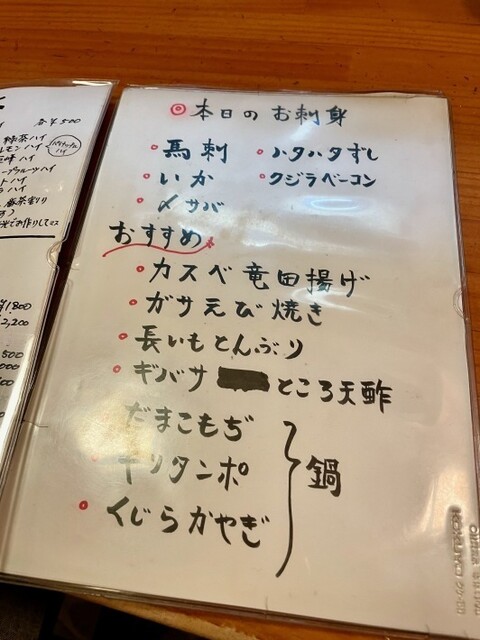 各¥500
緑茶ハイ
本日のお刺身
馬刺 ハタハタずし
いか クジラベーコン
〆サバ
おすすめ
カスベ竜田揚げ
ガサえび焼き
長いもとんぶり
ギバサ ところ天酢
だまこもぢ
キリタンポ
鍋
くじらかやぎ
¥1,800
2,200
500
000
KOKUYO